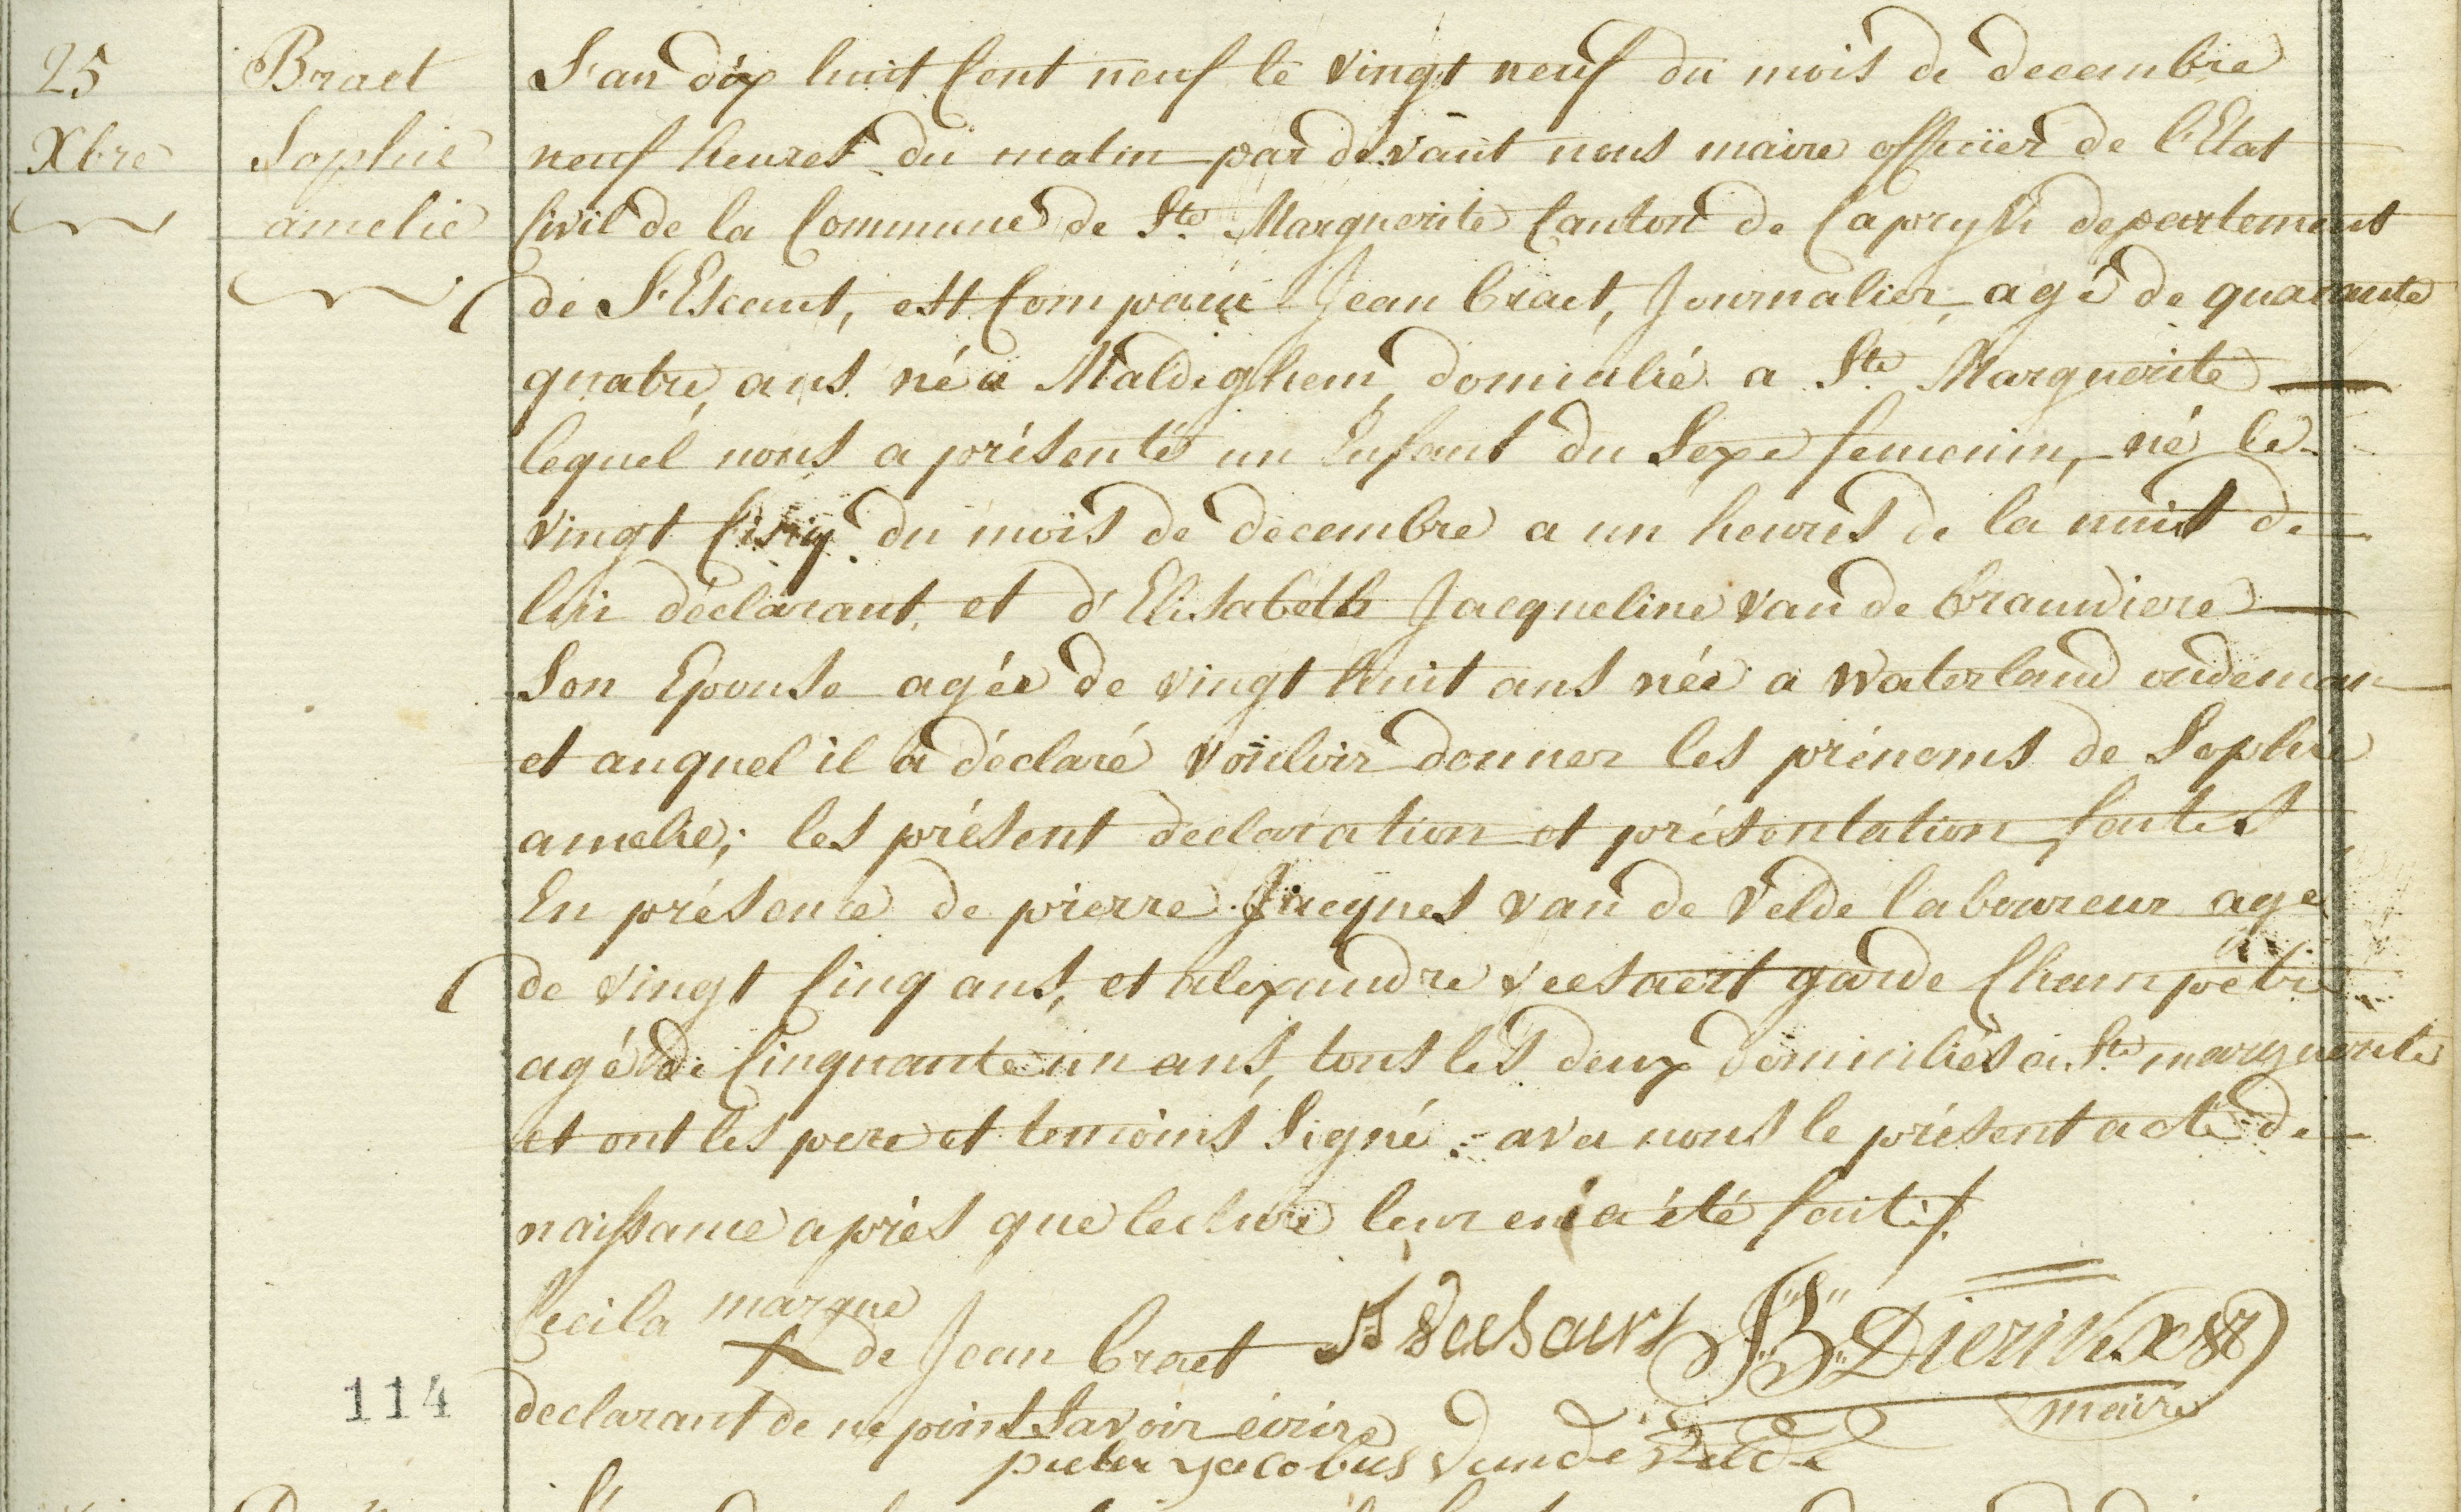 25
Xbre
Braet
Sophie
amelie
L'an dix huit Cent neuf le vingt neuf du mois de decembre
neuf heures du matin par devant nous maire officier de l'Etat
Civil de la Commune de Ste Marguerite Canton de Capryk departement
de L'Escaut, est Comparu Jean braet, Journalier, agé de quarante
quatre, ans né a Maldeghem, domicilié a Ste Marguerite
lequel nous a présenté un Enfant du Sexe femenin, né le
vingt Cinq du mois de decembre a un heures de la nuit de
lui déclarant, et d'Elisabeth Jacqueline van de braudiere
Son Epouse agée de vingt huit ans née a Waterland oudeman
et auquel il a déclaré vouloir donner les prénoms de Sophie
amelie; les présent declaration et présentation faites
En présence de pierre Jacques van de Velde laboureur age
de vingt Cinq ans, et alexandre veesaert garde Champêtre
agé de Cinquante un ans, tous les deux domiciliés a Ste marguerite
et ont les pere et temoins Signé avec nous le présent acte de
naissance apries que lecture leur en a été faite /.
Ceci la marque
X de Jean braet
declarant de ne point Savoir écrire
JB Dierikx
maire
pieter yacobus vande velde
114